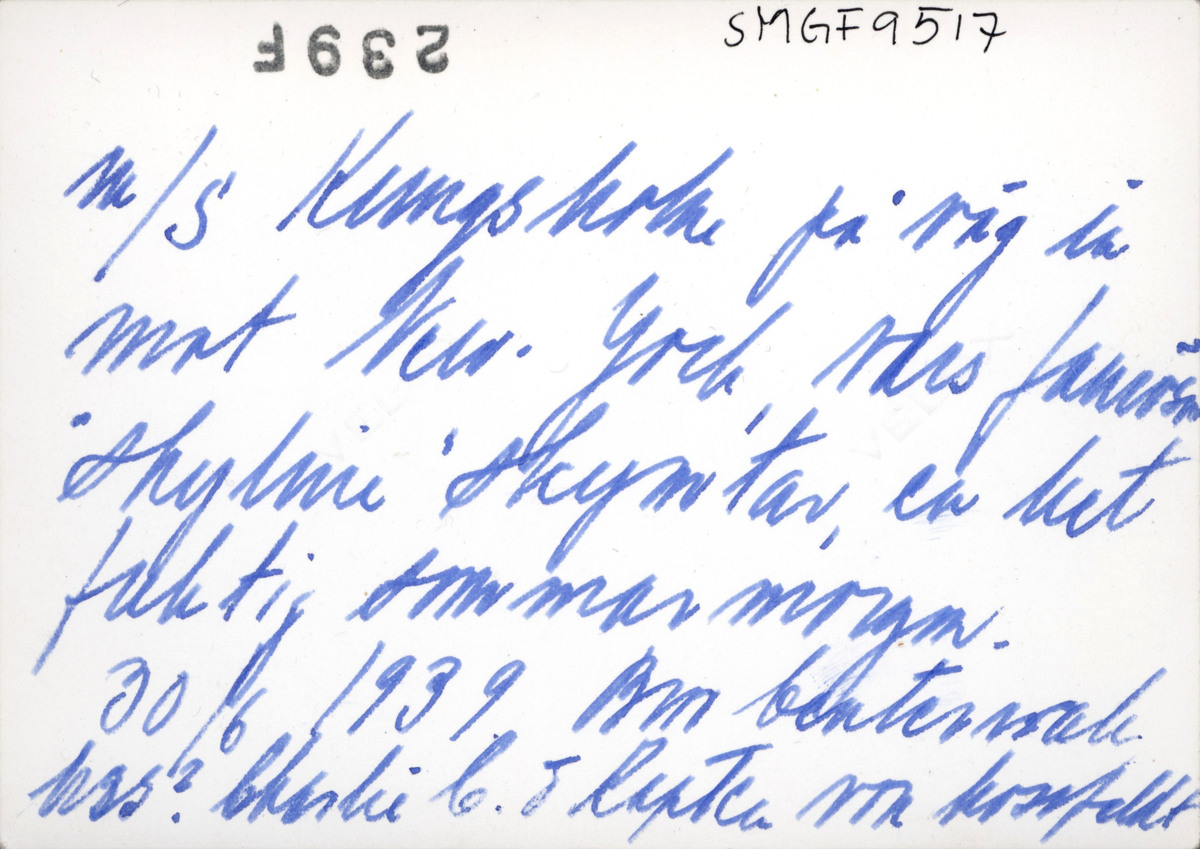 SMGF9517
239F
m/s Kungsholm på väg in
mot New-York, vars famösa
"skyline" skymtar, en het
fuktig sommarmorgon.
30/6 1939
Charlie C. o Kapten von